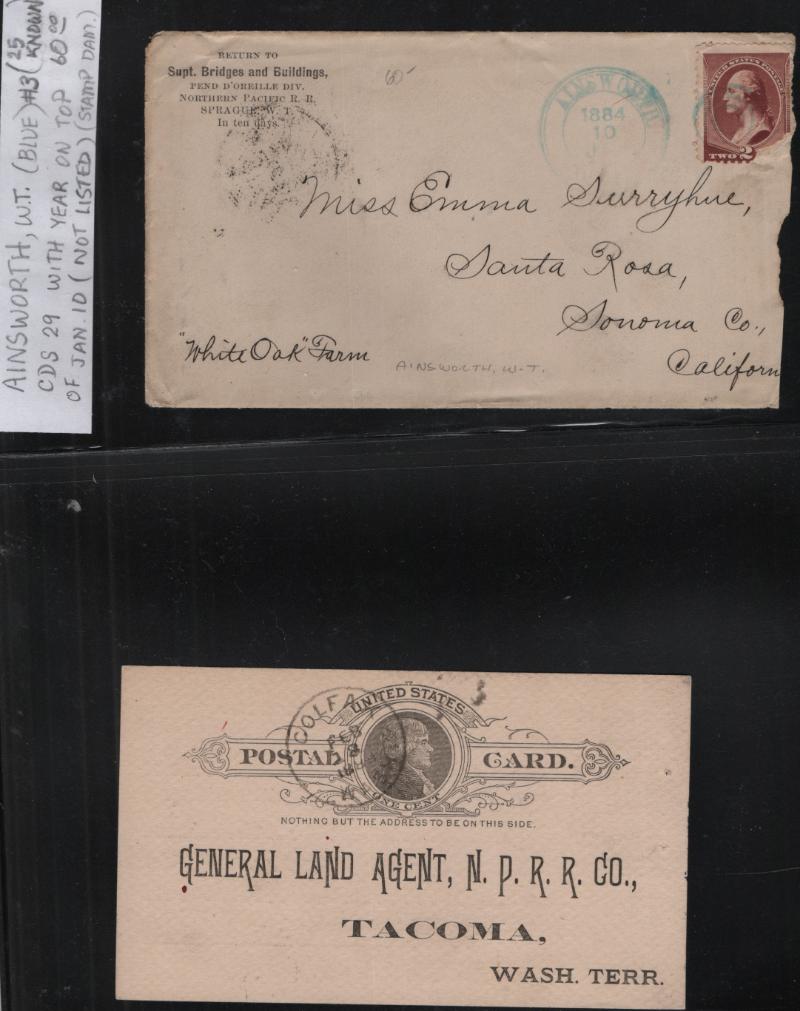 AINSWORTH, W.T. (BLUE) #3 (25 KNOWN)
CDS 29 WITH YEAR ON TOP 60.00
OF JAN. 10 (NOT LISTED) (STAMP DAM.)
RETURN TO
Supt. Bridges and Buildings,
PEND D'OREILLE DIV.
NORTHERN PACIFIC R. R.
SPRAGUE, W. T.
In ten days.
60-
AINSWORTH
1884
10
UNITED STATES POSTAGE
TWO 2
Miss Emma Surryhne,
Santa Rosa,
Sonoma Co.,
"White Oak" Farm
Californ
AINSWORTH, W-T.
COLFA
FEB
UNITED STATES
POSTAL CARD.
ONE CENT
NOTHING BUT THE ADDRESS TO BE ON THIS SIDE.
GENERAL LAND AGENT, N. P. R. R. CO.,
TACOMA,
WASH. TERR.